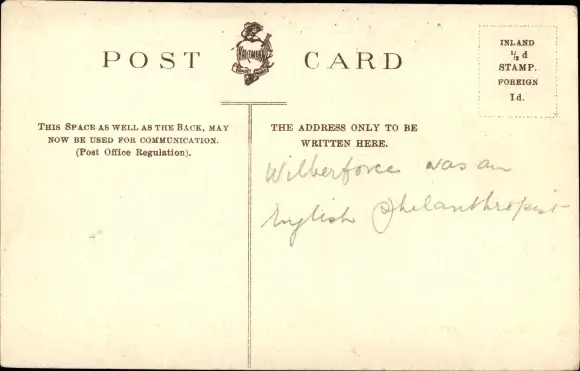 POST CARD
HARTMANN
INLAND
½d
STAMP.
FOREIGN
1d.
THIS SPACE AS WELL AS THE BACK, MAY
NOW BE USED FOR COMMUNICATION.
(Post Office Regulation).
THE ADDRESS ONLY TO BE
WRITTEN HERE.
Wilberforce was an
English Philanthropist